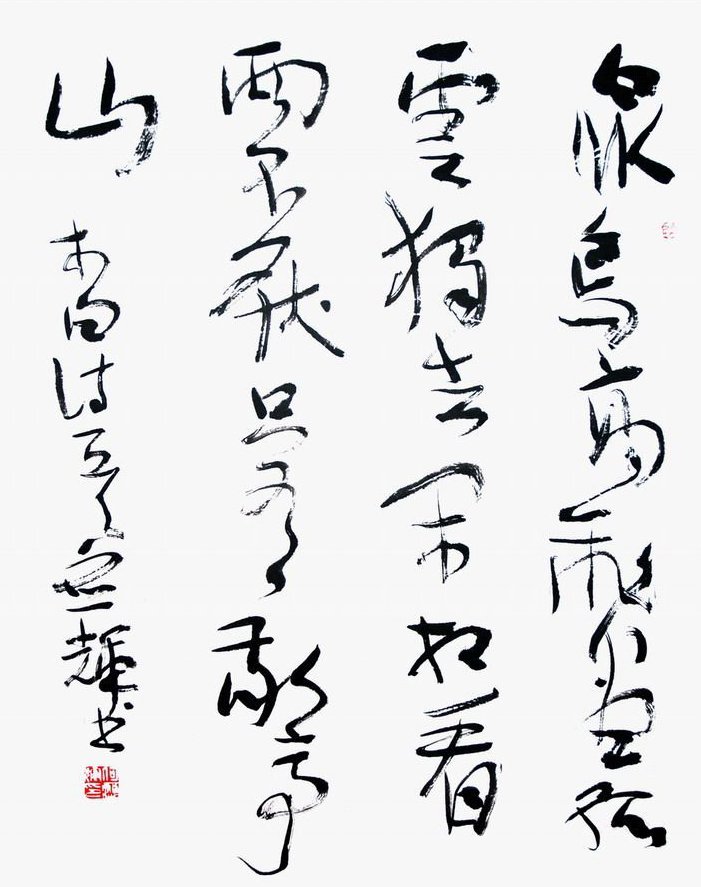 眾鳥高飛盡孤
雲獨去闲相看
兩不厭只有敬亭
山 李白诗 輝书